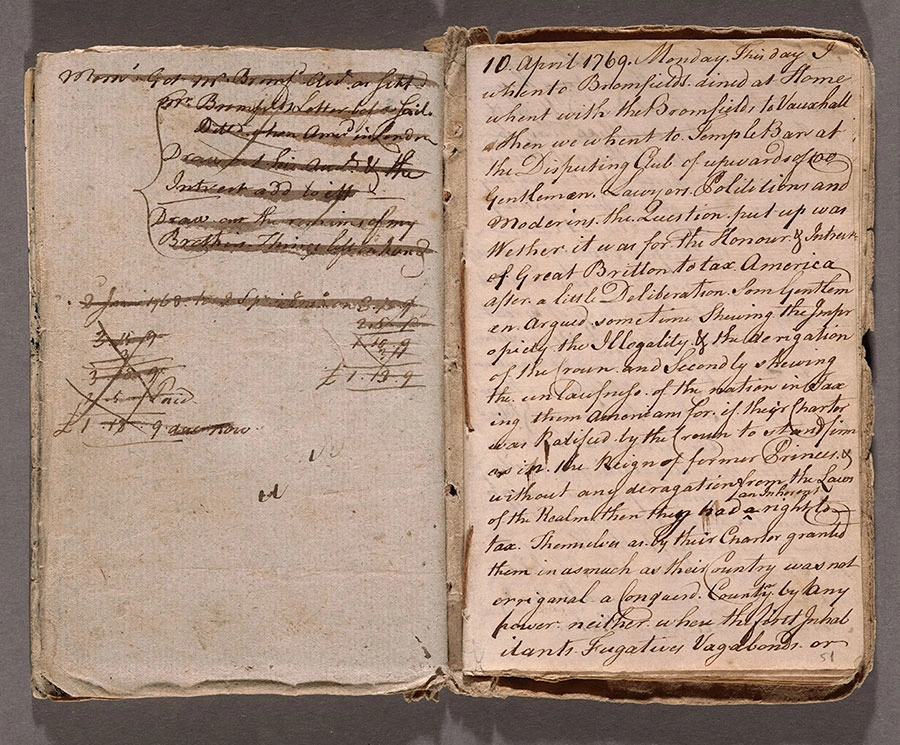 Mem.o Got Mr Bromf.
for Bromfields Letter
Draw out his Acct. & the
Intrest add to it
Draw out the remains of my
Brothers Things left in hand
2 June 1768
£ 1. 13. 9
Paid
£ 1 . 13 . 9 due now
10. April 1769. Monday. This day I
whent to Bromfields. dined at Home
whent with the Bromfields to Vauxhall
then we whent to Temple Barr at
the Disputing Club of upwards of 100
Gentleman. Lawyers. Polititions and
Moderins. the Question put up was
Wether it was for the Honour. & Intrest
of Great Britton to tax America
after a little Deliberation. Som Gentlem
en. Argued sometime Shewing the Impr
opiety the Illogality. & the derigation
of the Crown. and Secondly shewing
the. unlawfness. of the nation in Tax
ing them Americans for, if their Charter
was Ratifed by the Crown to stand firm
as in. the Reign of former Princes. &
without any deragation from the Laws
of the Realm. then they had an Inherent right to
tax. Themselves as by their Charter granted
them in asmuch as their Country was not
erriganal a Conquerd. Country. by any
power. neither. where the first Inhab
itants. Fugatives Vagabonds. or
51